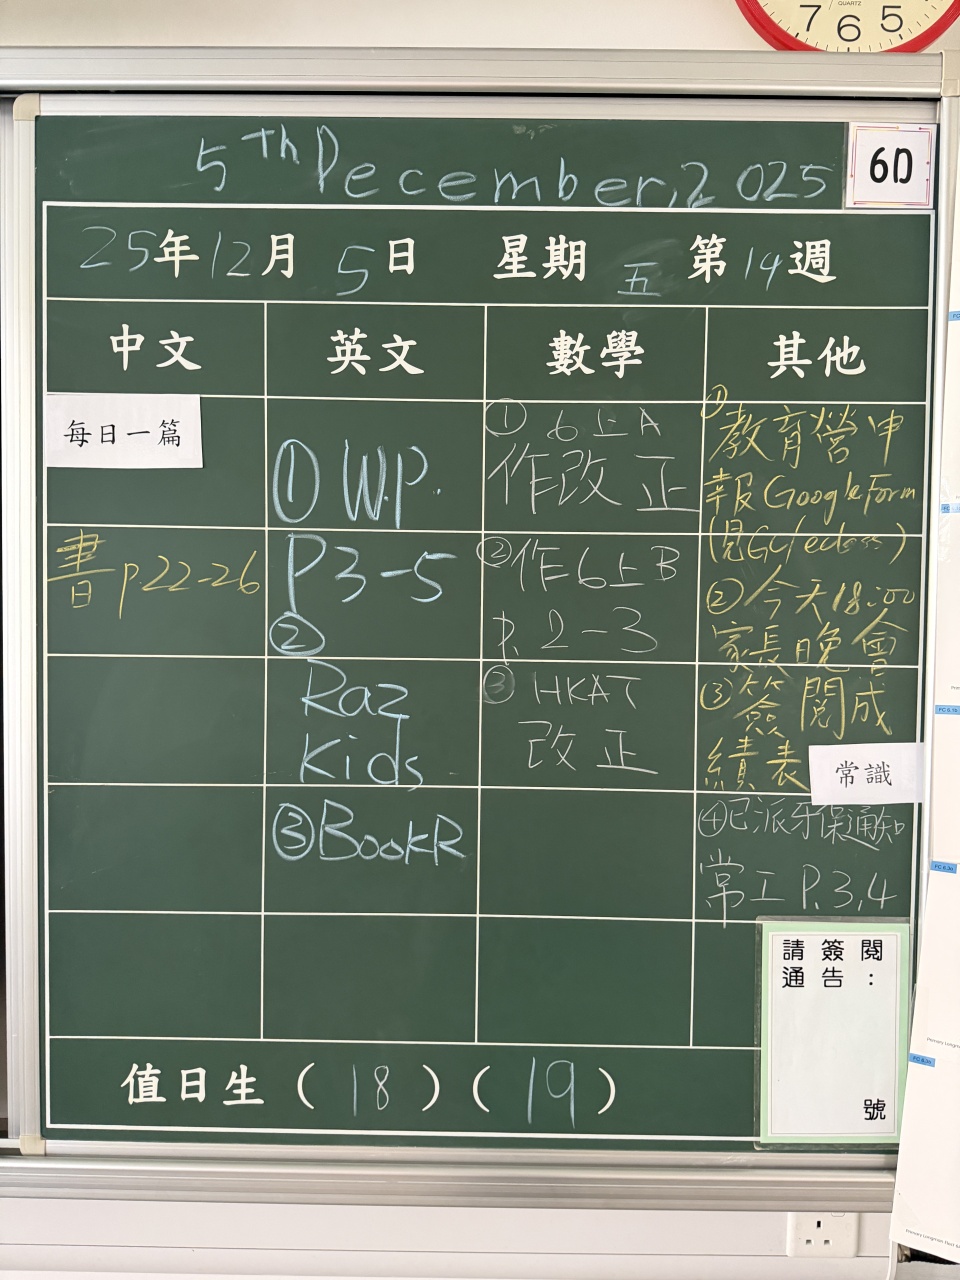 QUARTZ
7 6 5
5th December, 2025
6D
25年12月5日 星期五 第14週
中文
每日一篇
書 p.22-26
英文
① W.P.
P3-5
②
Raz
Kids
③BookR
數學
① 6上A
作改正
②作6上B
P.2-3
③ HKAT
改正
其他
①
教育營申
報GoogleForm
(見GC/eclass)
②今天18:00
家長晚會
③簽閱成
績表
常識
④已派牙保通知
常工 P.3,4
請簽閱
通告:
號
值日生(18)(19)